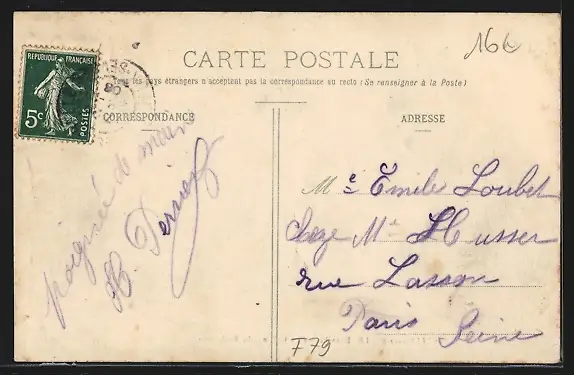 16L
CARTE POSTALE
Tous les pays étrangers n'acceptent pas la correspondance au recto (Se renseigner à la Poste)
RÉPUBLIQUE FRANÇAISE
5c
POSTES
CORRESPONDANCE
ADRESSE
poignée de main
H. Perra
Mr Émile Loubet
chez Mr Husser
rue Lasson
Paris Seine
F79